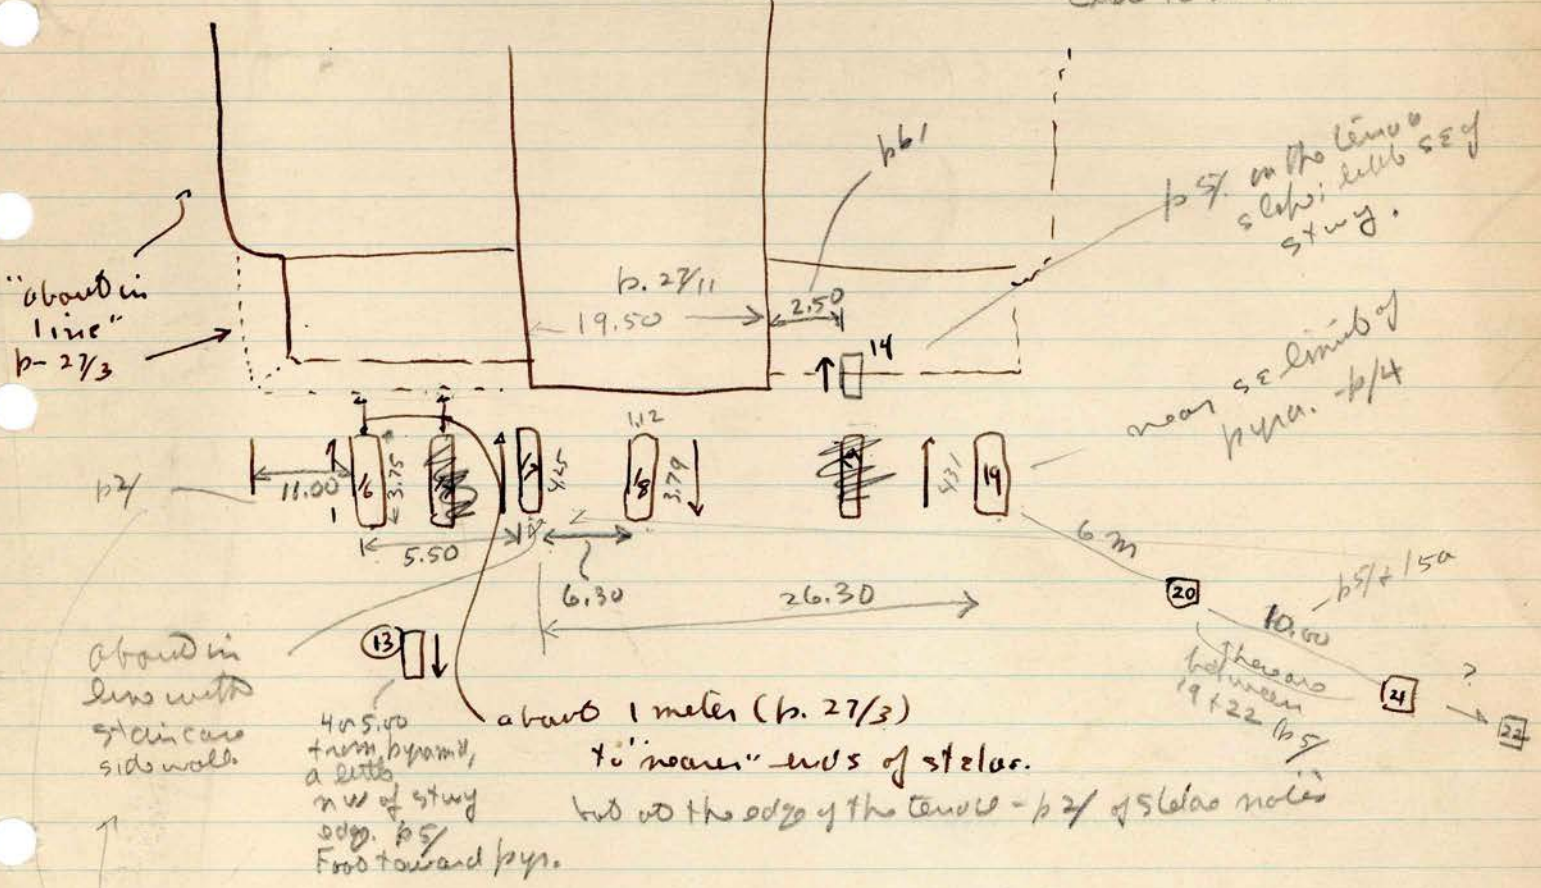 p61
p5/. on the
slope; little SE of
stwy.
"about in
line"
p- 27/3
p. 27/11
19.50
2.50
14
near SE limit of
pyra. -p/4
p2/
11.00
16
3.75
17
4.25
1.12
18
3.79
4.31
19
5.50
6.30
26.30
6 m
20
p5/+15a
10.00
There are
between
19+22 p5/
21
?
22
13
about in
line with
staircase
sidewall
4 or 5.00
from pyramid,
a little
nw of stwy
edge. p5/
Foot toward pyr.
about 1 meter (p. 27/3)
to "nearer" ends of stelae.
but at the edge of the terrace - p2/ of Stelae notes